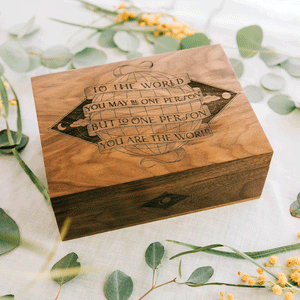 TO THE WORLD
YOU MAY BE ONE PERSON
BUT TO ONE PERSON
YOU ARE THE WORLD